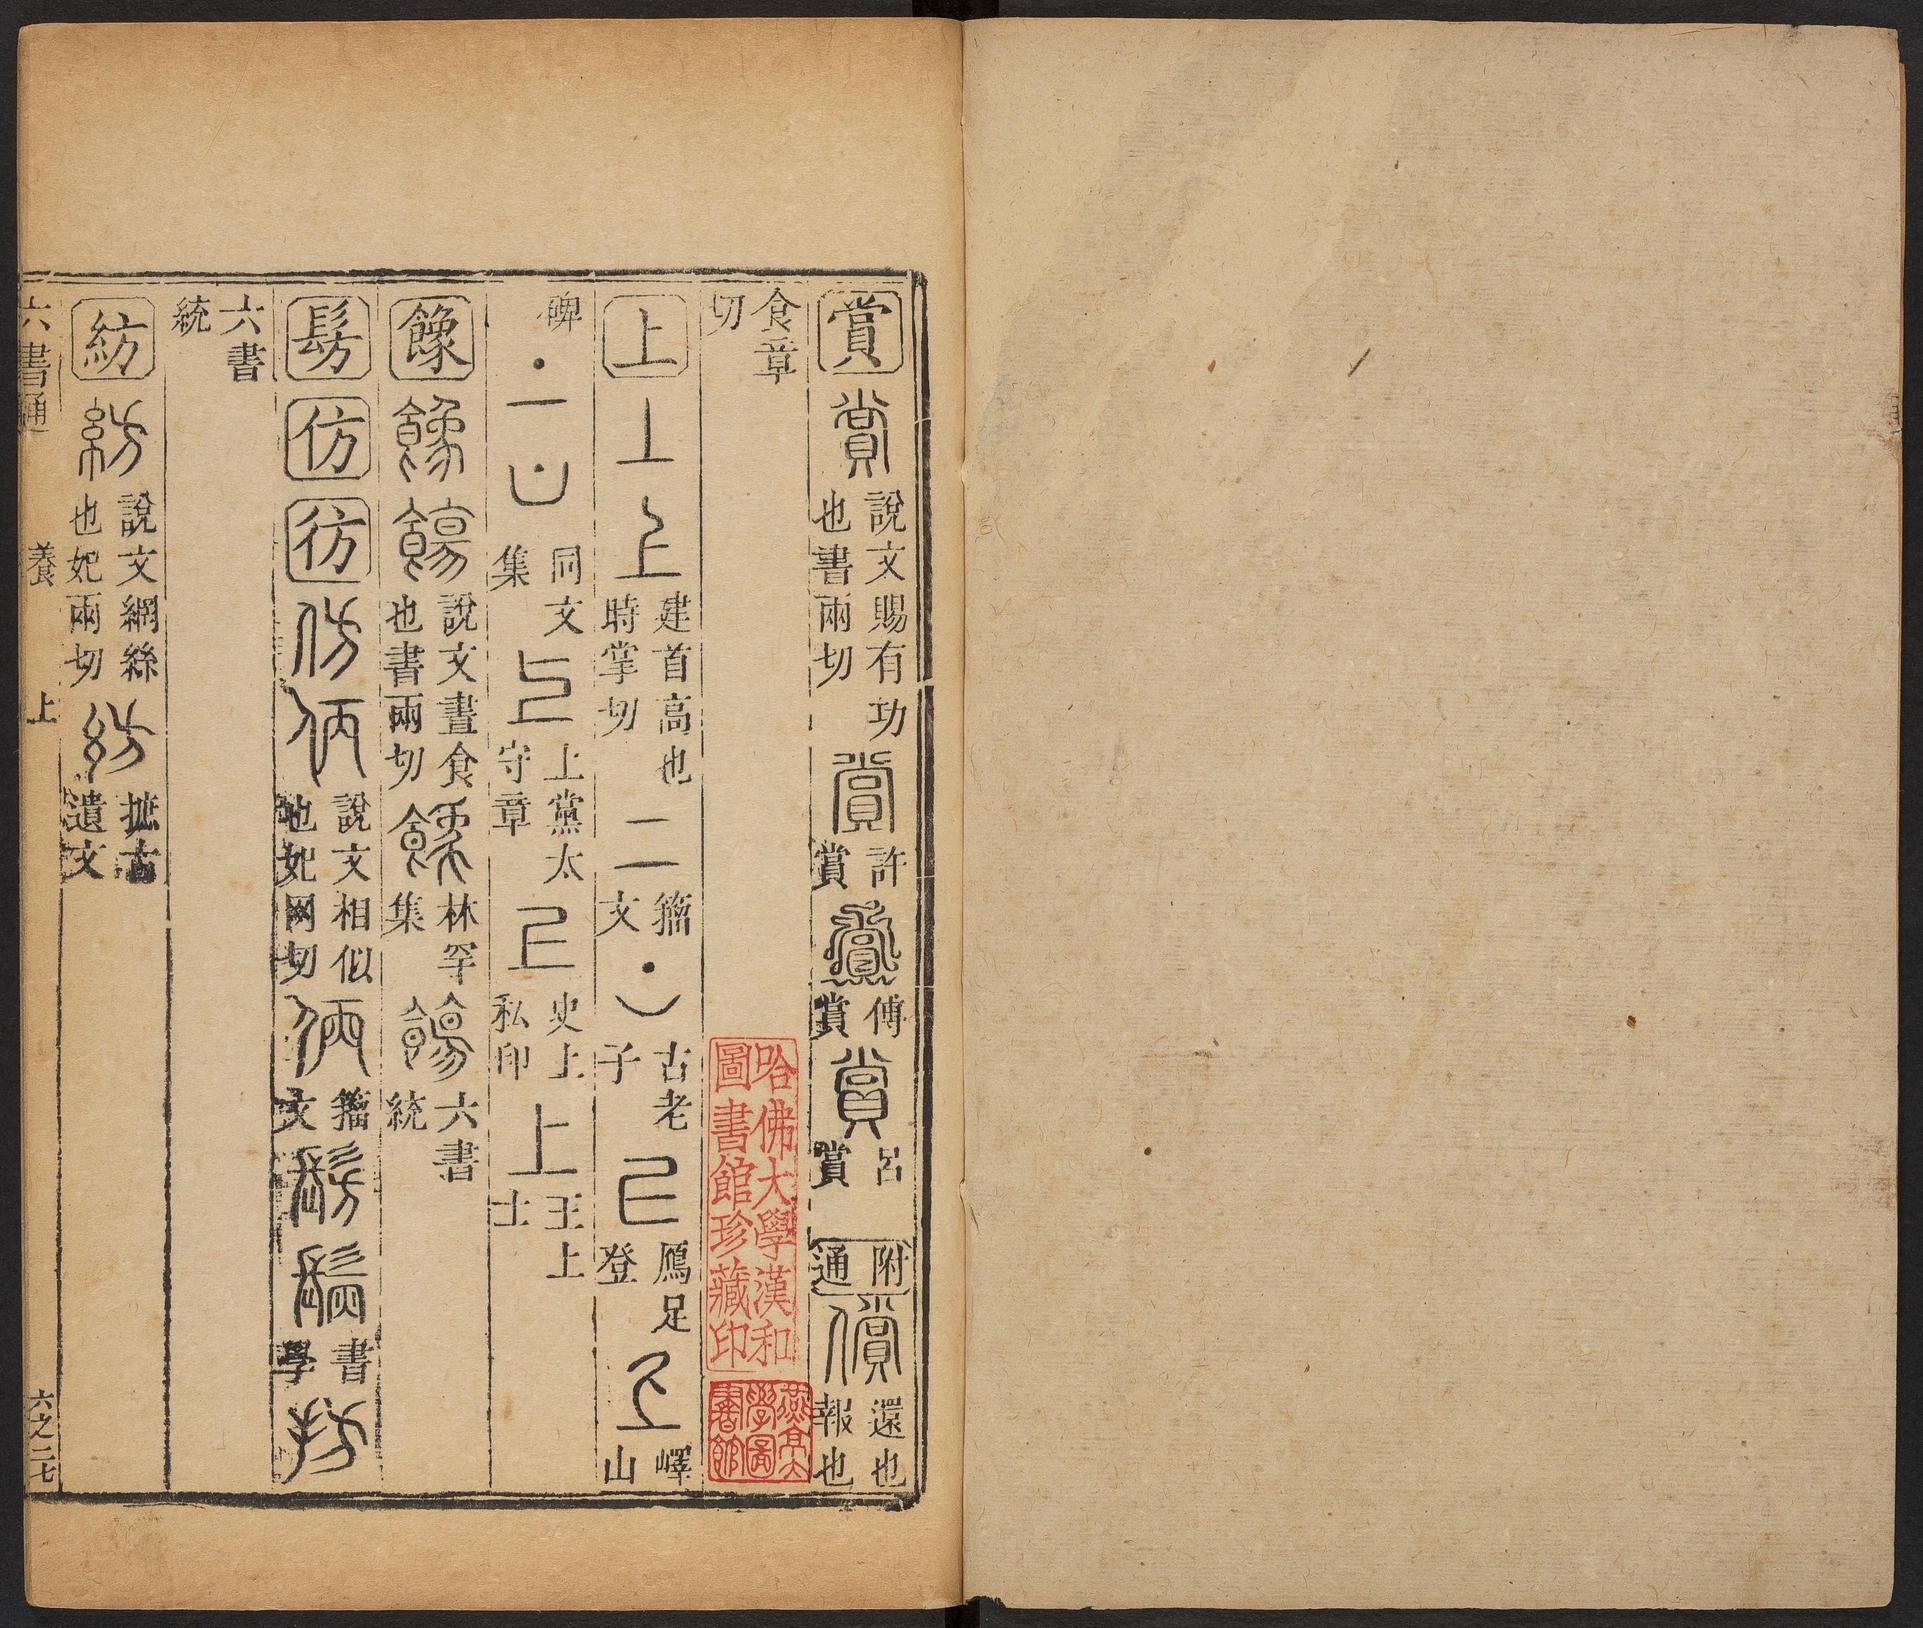 賞 賞 說文賜有功也書兩切 賞 許賞 賞 傅賞 賞 呂賞 附通 償 還也報也
食章切
上 上 上 建首高也時掌切 二 籀文 古老子 上 鴈足登 上 嶧山
碑 同文集 上 上黨太守章 上 史上私印 上 王上士
餯 說文晝食也書兩切 林罕集 六書統
髣 仿 彷 仿 說文相似也妃网切 籀文 書學
六書統
紡 紡 說文網絲也妃兩切 紡 摭古遺文
六書通 養 上 六之二七
哈佛大學漢和圖書館珍藏印
燕京大學圖書館